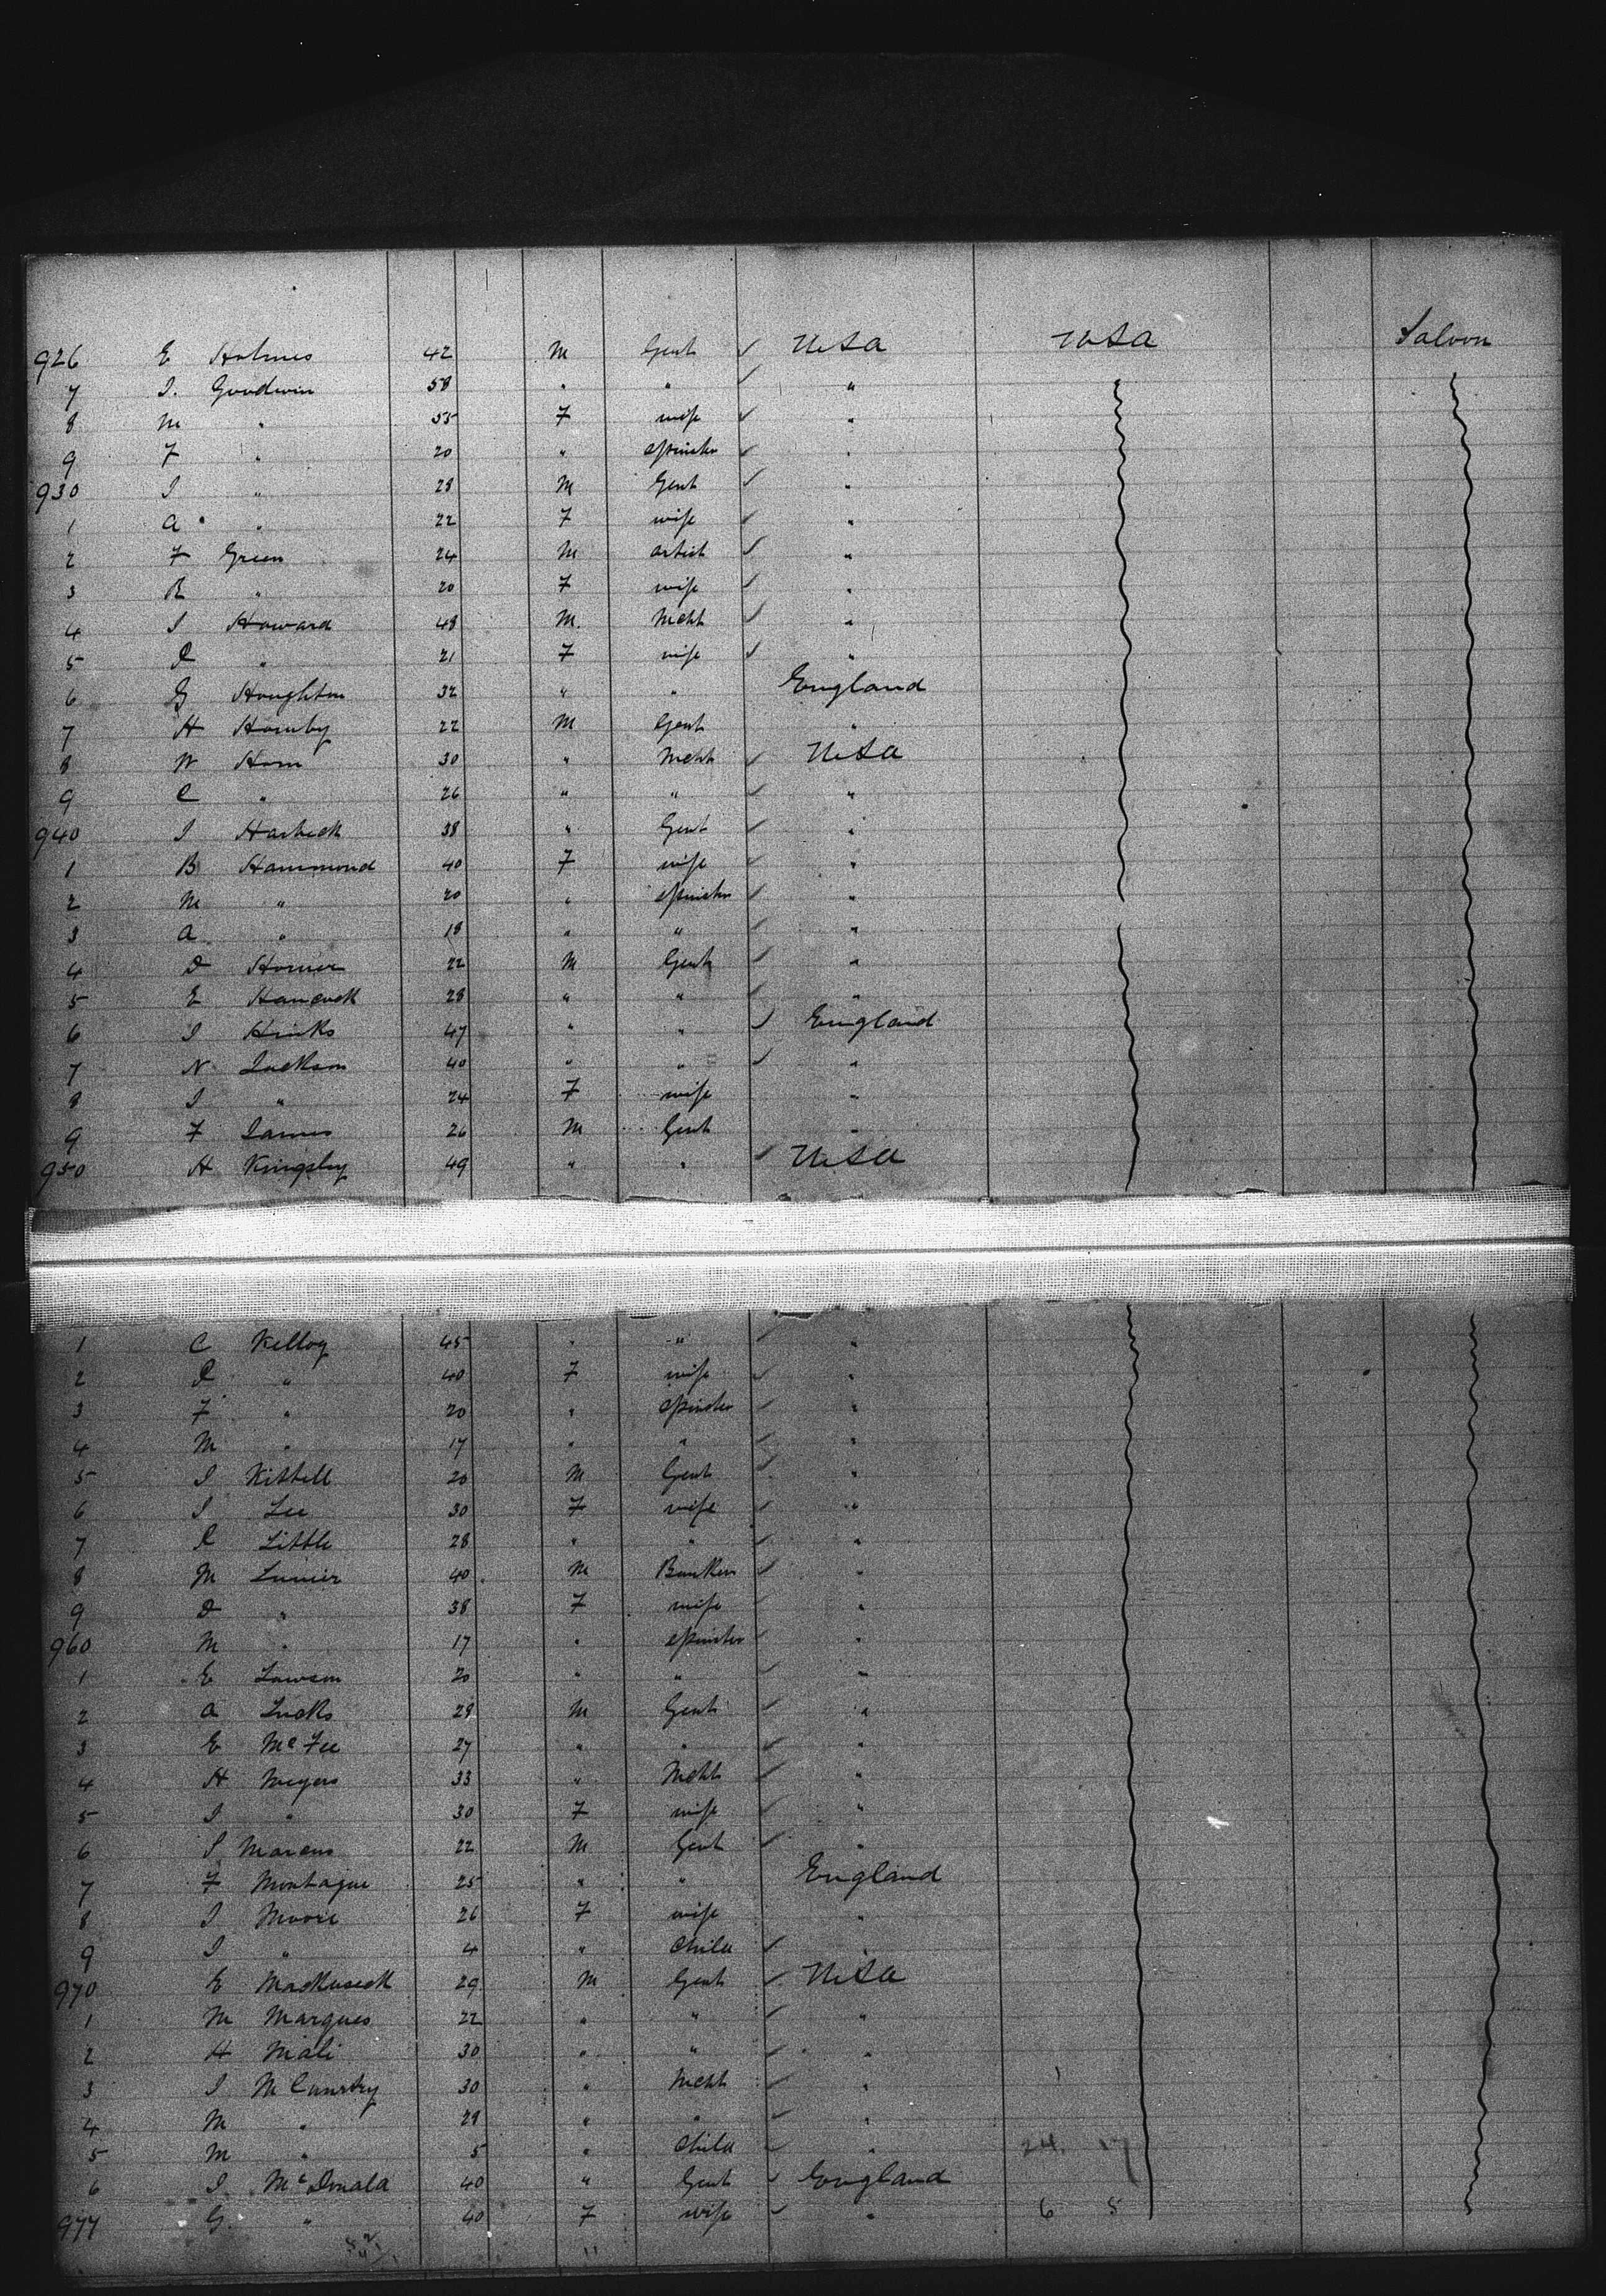 926 E Holmes 42 M Gent ✓ USA USA Saloon
7 I. Goodwin 58 " " ✓ "
8 M " 55 F wife ✓ "
9 F " 20 " spinster ✓ "
930 I " 28 M Gent ✓ "
1 A " 22 F wife ✓ "
2 F Green 24 M artist ✓ "
3 R " 20 F wife ✓ "
4 I Howard 48 M. Mcht ✓ "
5 " 21 F wife ✓ "
6 G Houghton 32 " " England
7 H Hornby 22 M Gent "
8 W Horn 30 " Mcht ✓ USA
9 C " 26 " " ✓ "
940 I Harbeck 38 " Gent ✓ "
1 B Hammond 40 F wife ✓ "
2 M " 20 " spinster ✓ "
3 A " 18 " " ✓ "
4 D Horner 22 M Gent ✓ "
5 E Hancock 28 " " ✓ "
6 I Hinks 47 " " ✓ England
7 N Jackson 40 " " ✓ "
8 I " 24 F wife "
9 F James 26 M Gent "
950 H Kingsley 49 " " ✓ USA
1 C Kellog 45 " " ✓ "
2 " 40 F wife ✓ "
3 F " 20 " spinster ✓ "
4 M " 17 " " ✓ "
5 I Kittell 20 M Gent ✓ "
6 I Lee 30 F wife ✓ "
7 Little 28 " " ✓ "
8 M Lunier 40 M Banker ✓ "
9 D " 38 F wife ✓ "
960 M " 17 " spinster ✓ "
1 E Lawson 20 " " ✓ "
2 A Lucks 28 M Gent ✓ "
3 E McFee 27 " " ✓ "
4 H Meyers 33 " Mcht ✓ "
5 I " 30 F wife ✓ "
6 S Marcus 22 M Gent ✓ "
7 F Montague 25 " " England
8 I Moore 26 F wife "
9 I " 4 " Child ✓ "
970 E 29 M Gent ✓ USA
1 M Marques 22 " " ✓ "
2 H Mali 30 " " ✓ "
3 I 30 " Mcht ✓ "
4 M " " " ✓ "
5 M " 5 " Child ✓ " 24. 17
6 I McDonald 40 " Gent ✓ England
977 G. " 40 F wife ✓ " 6 5
11